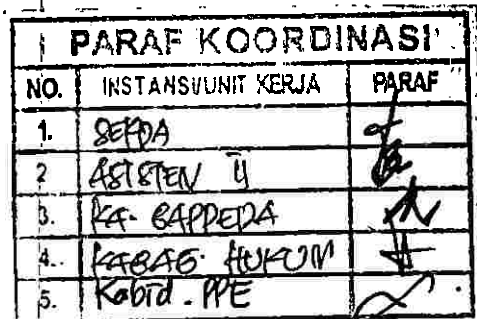 PARAF KOORDINASI
NO. INSTANSI/UNIT KERJA PARAF
1. SEKDA
2 ASISTEN II
3. KA. BAPPEDA
4. KABAG. HUKUM
5. Kabid. PPE